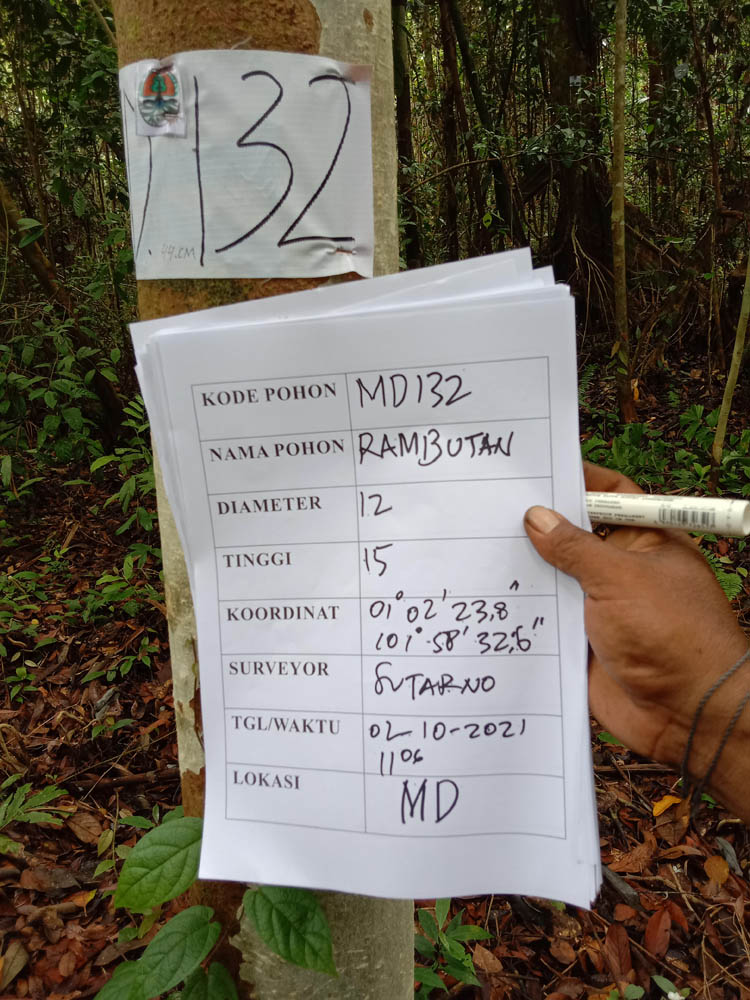 132
44.CM
KODE POHON MD132
NAMA POHON RAMBUTAN
DIAMETER 12
TINGGI 15
KOORDINAT 01° 02' 23,8"
101°.58' 32,6"
SURVEYOR SUTARNO
TGL/WAKTU 02-10-2021
11⁰⁶
LOKASI MD